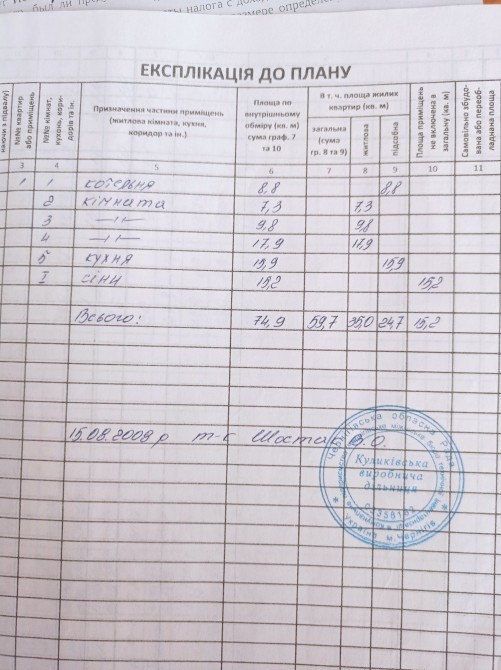 налога с
размере определе
ЕКСПЛІКАЦІЯ ДО ПЛАНУ
№№ квартир або приміщень
№№ кімнат, кухонь, коридорів та ін.
Призначення частини приміщень (житлова кімната, кухня, коридор та ін.)
Площа по внутрішньому обміру (кв. м) сума граф. 7 та 10
В т. ч. площа жилих квартир (кв. м)
загальна (сума гр. 8 та 9)
житлова
підсобна
Площа приміщень не включена в загальну (кв. м)
Самовільно збудована або переобладнана площа
3 4 5 6 7 8 9 10 11
1 1 котельня 8,8 8,8
2 кімната 7,3 7,3
3 —ı ı— 9,8 9,8
4 —ı ı— 17,9 17,9
5 кухня 15,9 15,9
I сіни 15,2 15,2
Всього: 74,9 59,7 35,0 24,7 15,2
15.08.2008 р т-к Шостак В.О.
Чернігівська обласна рада
Куликівська
виробнича
дільниця
Україна м.Чернігів